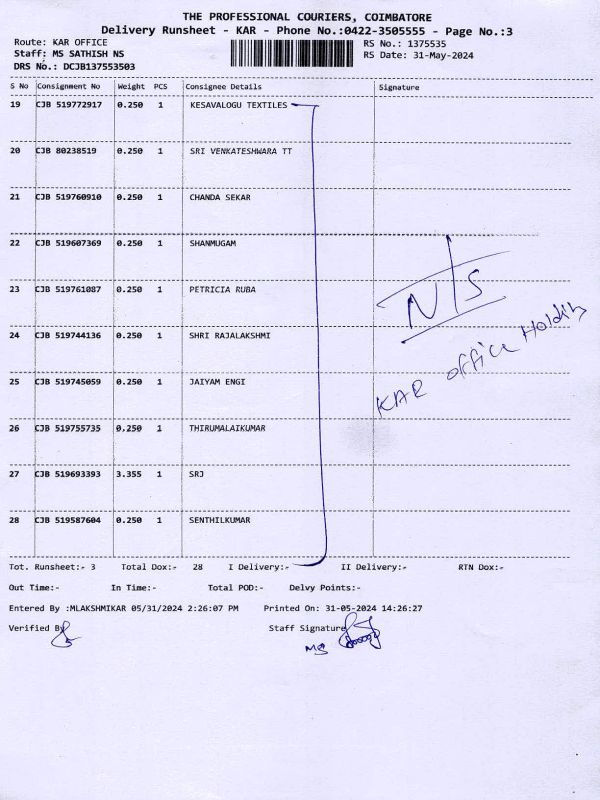 THE PROFESSIONAL COURIERS, COIMBATORE
Delivery Runsheet - KAR - Phone No.:0422-3505555 - Page No.:3
Route: KAR OFFICE
RS No.: 1375535
Staff: MS SATHISH NS
RS Date: 31-May-2024
DRS No.: DCJB137553503
S No Consignment No Weight PCS Consignee Details Signature
19 CJB 519772917 0.250 1 KESAVALOGU TEXTILES
20 CJB 80238519 0.250 1 SRI VENKATESHWARA TT
21 CJB 519760910 0.250 1 CHANDA SEKAR
22 CJB 519607369 0.250 1 SHANMUGAM
23 CJB 519761087 0.250 1 PETRICIA RUBA
N/S
24 CJB 519744136 0.250 1 SHRI RAJALAKSHMI
KAR office Holding
25 CJB 519745059 0.250 1 JAIYAM ENGI
26 CJB 519755735 0.250 1 THIRUMALAIKUMAR
27 CJB 519693393 3.355 1 SRJ
28 CJB 519587604 0.250 1 SENTHILKUMAR
Tot. Runsheet:- 3 Total Dox:- 28 I Delivery:- II Delivery:- RTN Dox:-
Out Time:- In Time:- Total POD:- Delvy Points:-
Entered By :MLAKSHMIKAR 05/31/2024 2:26:07 PM Printed On: 31-05-2024 14:26:27
Verified By Staff Signature
MS